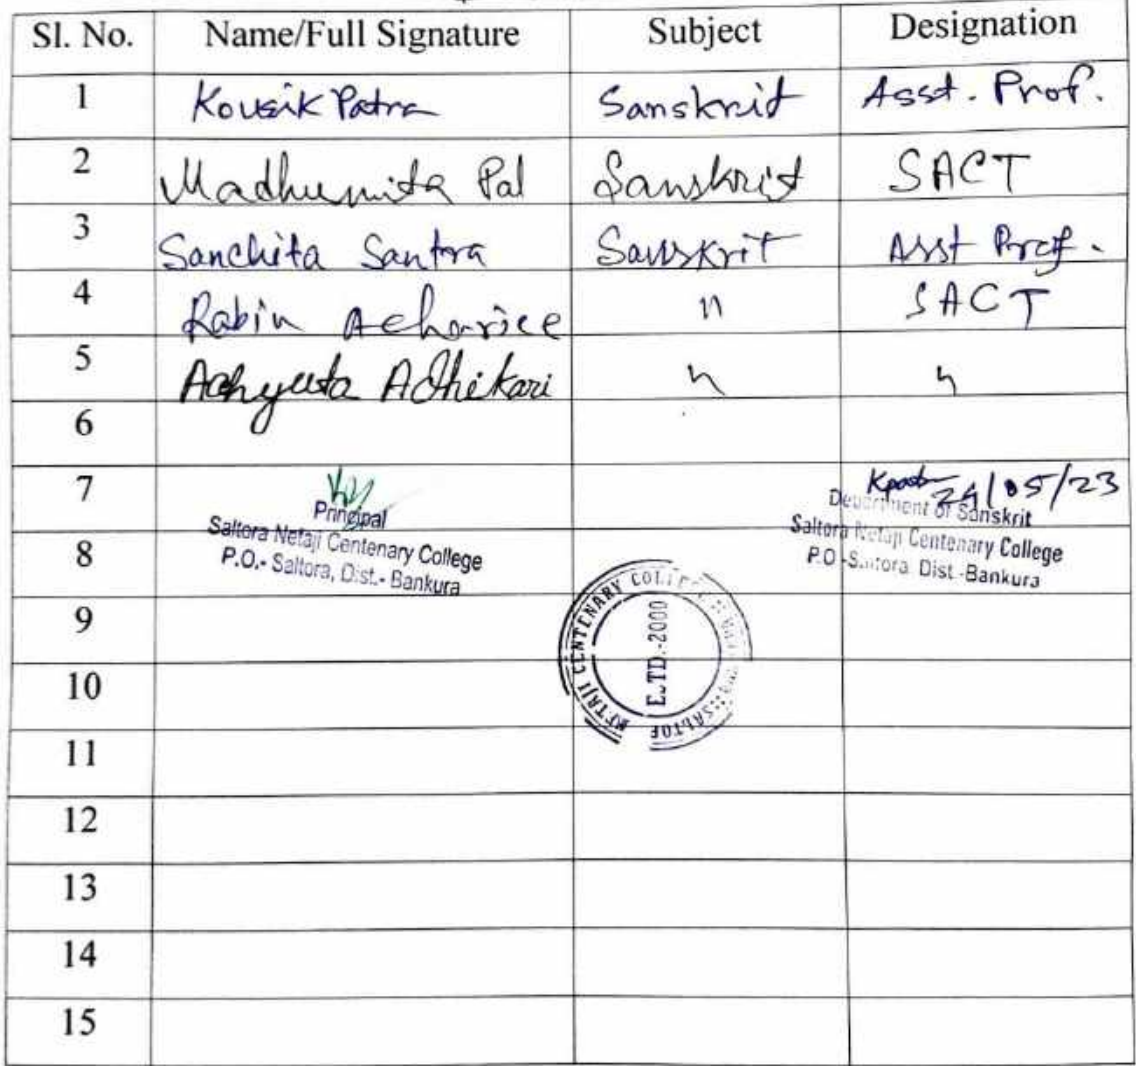 Sl. No. Name/Full Signature Subject Designation
1 Kousik Patra Sanskrit Asst. Prof.
2 Madhumita Pal Sanskrit SACT
3 Sanchita Santra Sanskrit Asst Prof.
4 Rabin Acharjee " SACT
5 Achyuta Adhikari " "
6
7
Principal
Saltora Netaji Centenary College
P.O.- Saltora, Dist.- Bankura
24/05/23
Department of Sanskrit
Saltora Netaji Centenary College
P.O-Saltora Dist-Bankura
8
NETAJI CENTENARY COLLEGE
ETD.-2000
9
10
11
12
13
14
15